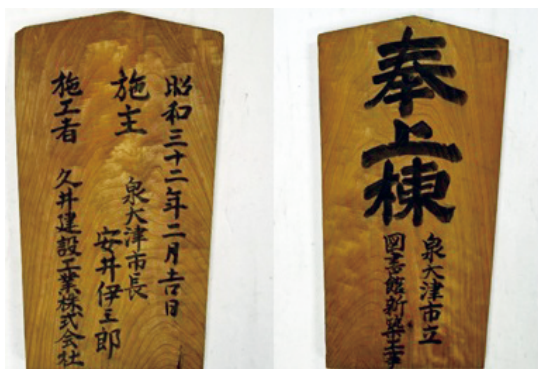 昭和三十二年二月吉日
施主
泉大津市長
安井伊三郎
施工者 久井建設工業株式会社
奉上棟
泉大津市立
図書館新築工事